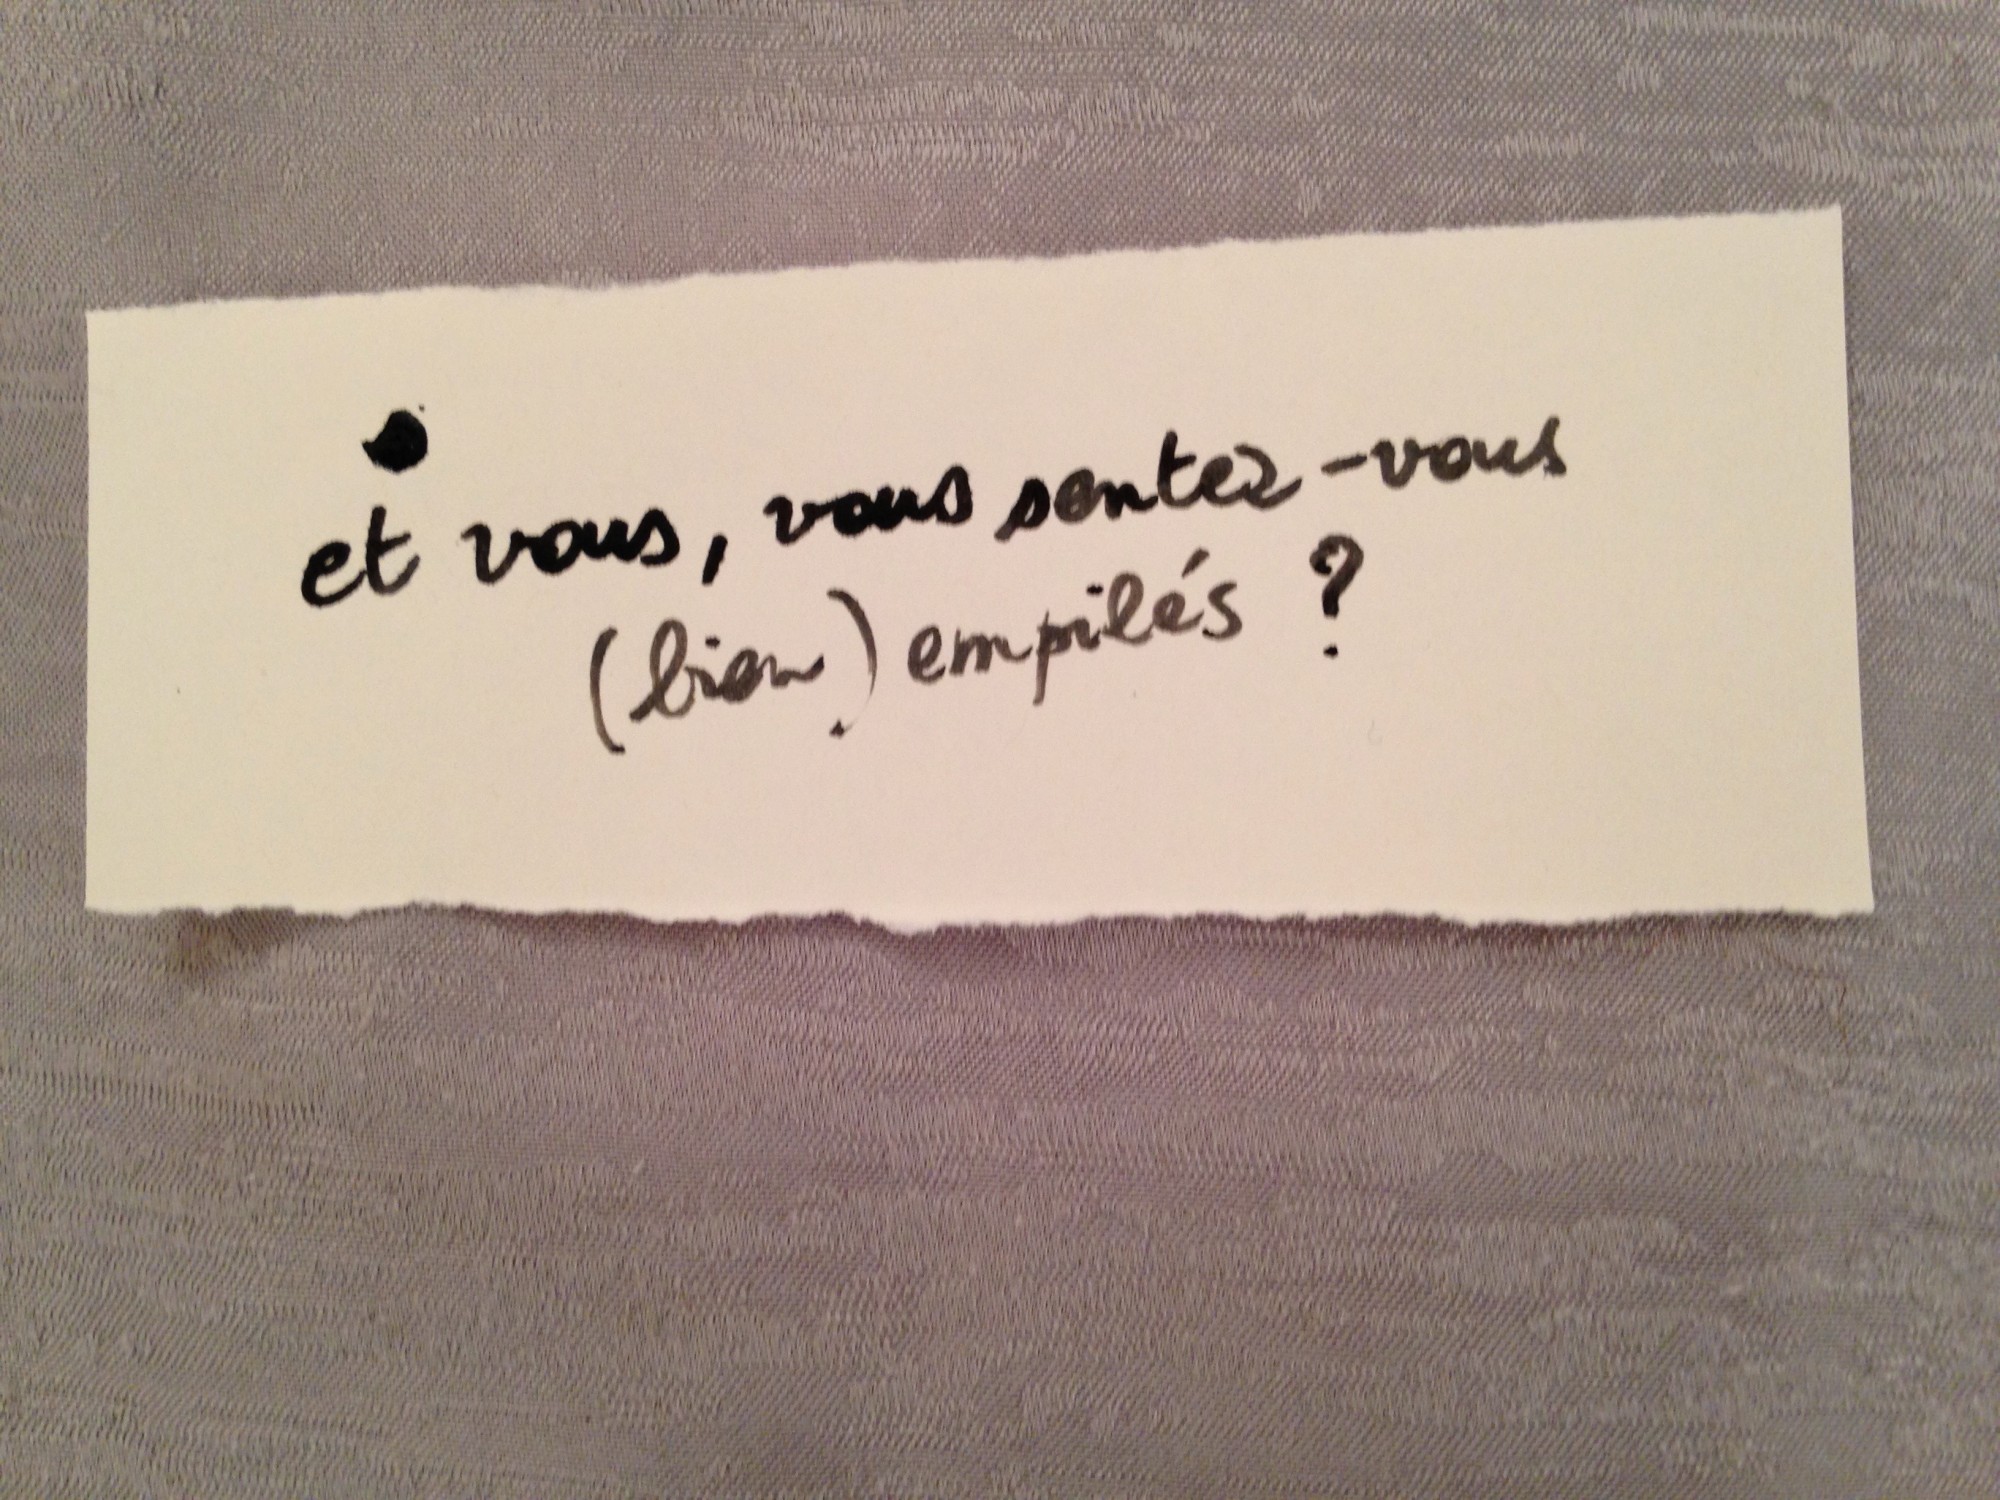 et vous, vous sentez-vous
(bien) empilés ?